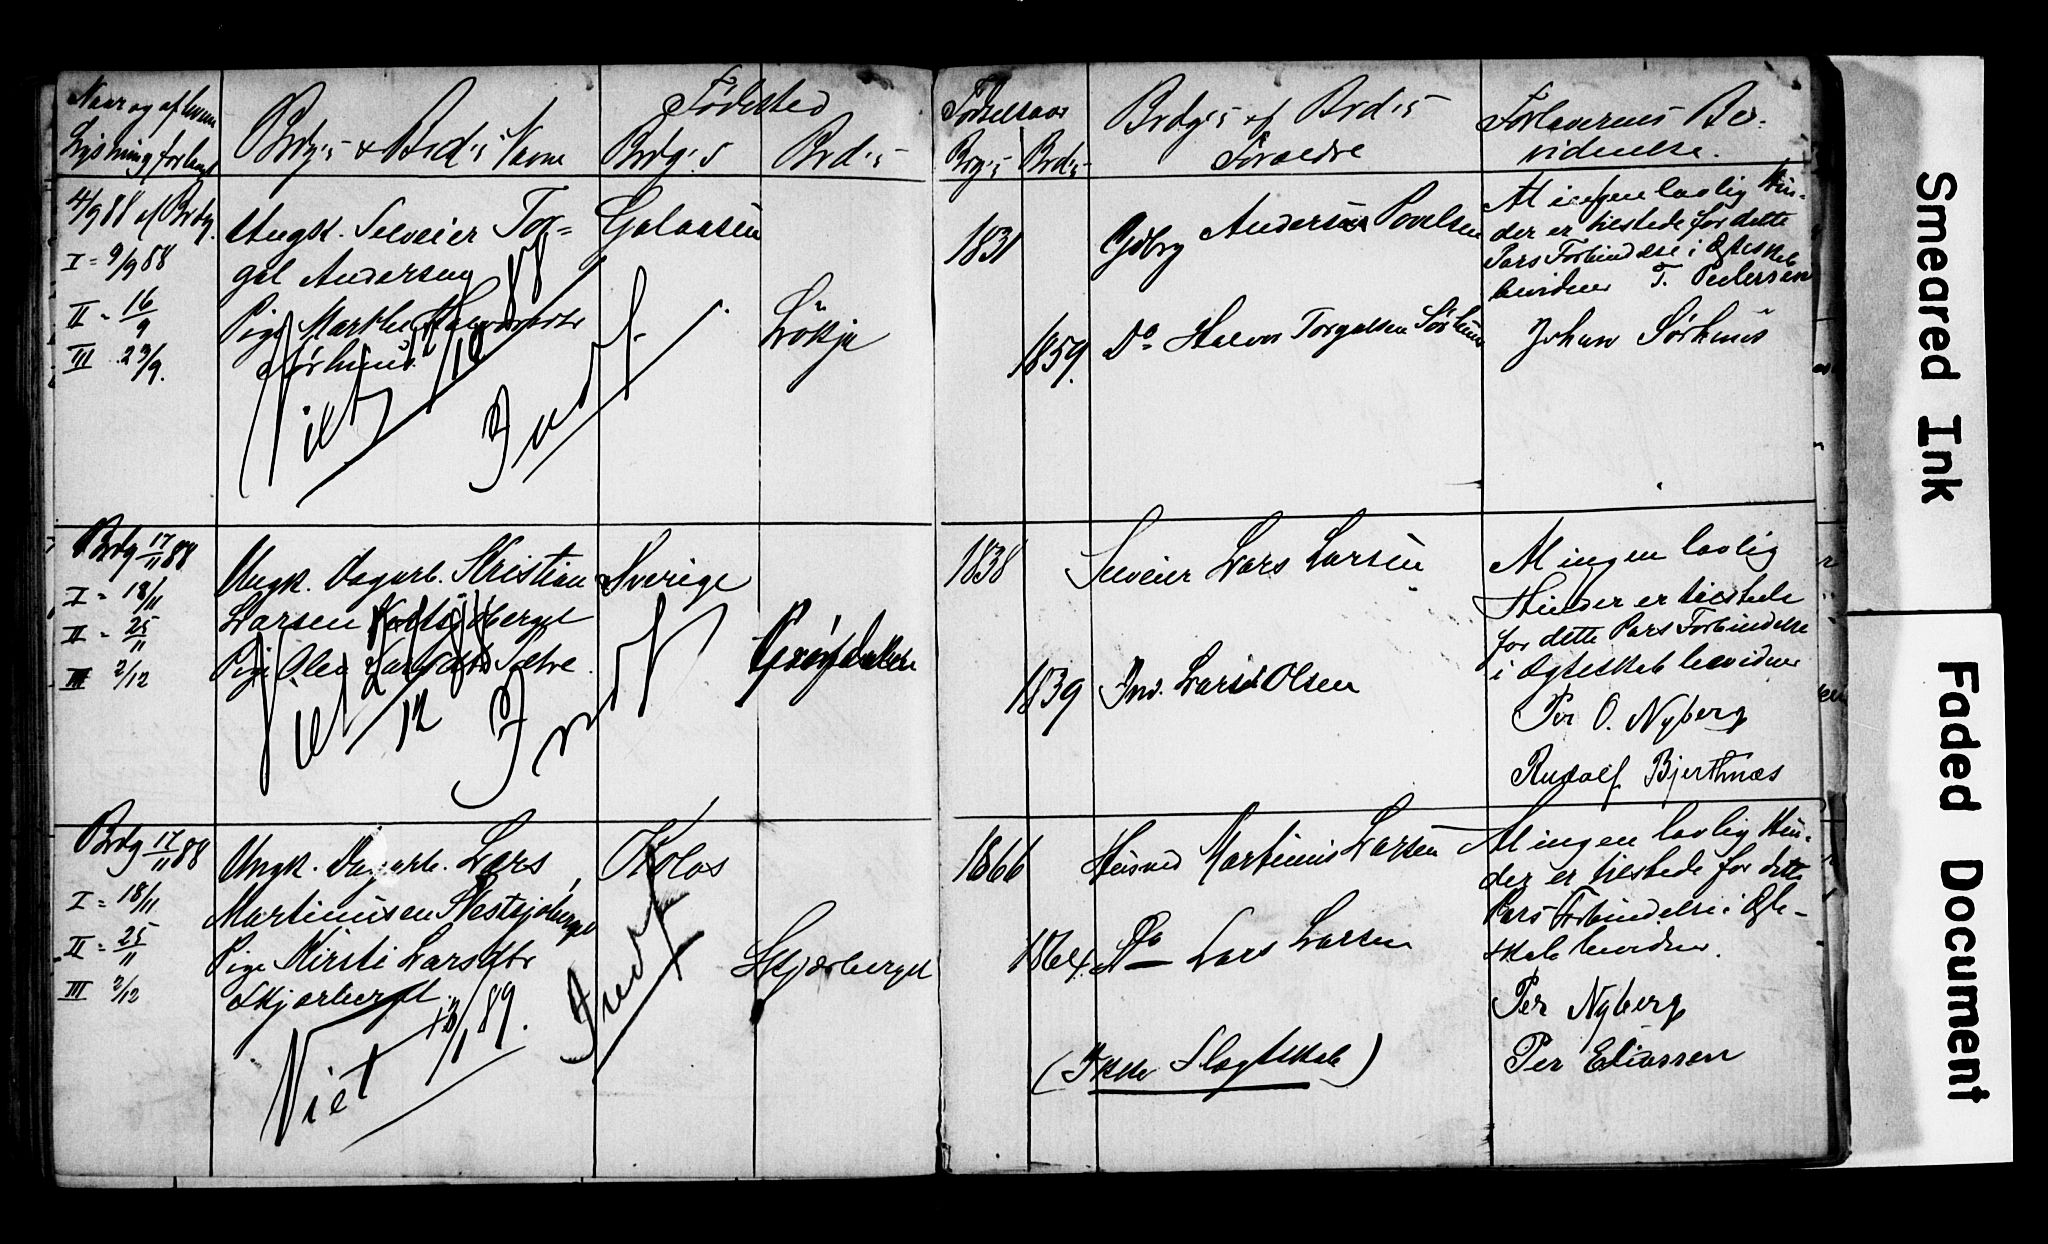 Naar og af hvem
Lysning forlangt
Brdg's & Brd's Navne
Fødested
Brdg's
Brd's
Fødselsaar
Brg's
Brd's
Brdg's & Brd's
Forædre
Forlovernes Be-
vidnelse.
4/9 88 af Brdg.
I = 9/9 88
II = 16/9
III 23/9.
Ungk. Selveier Tor=
gal Andersen
Pige Marthe
Sørhuus
Viet 12/10 88
Indf.
Galaasen
Lökja
1831
1859.
Gdbrg Andersen Povelsen
Do Halvor Torgalsen Sørhuus
At ingen lovlig Hin-
der er tilstede for dette
Pars Forbindelse i Ægteskab
bevidner T. Pedersen
Johan Sørhuus
Brdg 17/11 88
I = 18/11
II = 25/11
III 2/12
Ungk. Dagarb. Kristian
Larsen
Pige Olea Larsdtr Sætre
Viet 12
Indf
Sverige
1838
1839
Selveier Lars Larsen
Ind. Lars Olsen
At ingen lovlig
Hinder er tilstede
for dette Pars Forbindelse
i Ægteskab bevidner
Per O. Nyberg
Rudolf Bjertnæs
Brdg 17/11 88
I = 18/11
II = 25/11
III 2/12
Ungk. Dagarb. Lars
Martinusen
Pige Kirsti Larsdtr
Skjærberget
Viet 13/1 89.
Indf
Kolos
Skjærberget
1866
1864.
Husmd Martinus Larsen
Do Lars Larsen
(Ikke Slagtskab)
At ingen lovlig Hin-
der er tilstede for dette
Pars Forbindelse i Ægte-
skab bevidner.
Per Nyberg
Per Eliassen
Smeared Ink
Faded Document